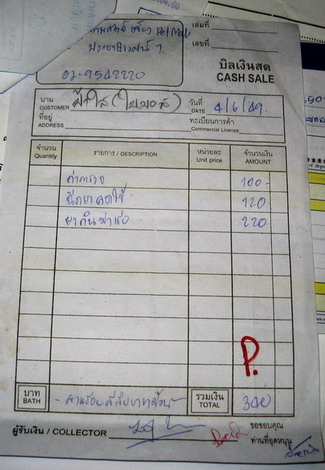 เล่มที่
เลขที่
02-9542220
บิลเงินสด
CASH SALE
นาม
CUSTOMER
วันที่
DATE 4/6/49
ที่อยู่
ADDRESS
ทะเบียนการค้า
Commercial License
จำนวน
Quantity
รายการ / DESCRIPTION
หน่วยละ
Unit price
จำนวนเงิน
AMOUNT
ค่าตรวจ 100-
ฉีดยาลดไข้ 120
220
P.
บาท
BATH
รวมเงิน
TOTAL
340
ผู้รับเงิน / COLLECTOR
ขอขอบคุณ
ท่านที่อุดหนุน